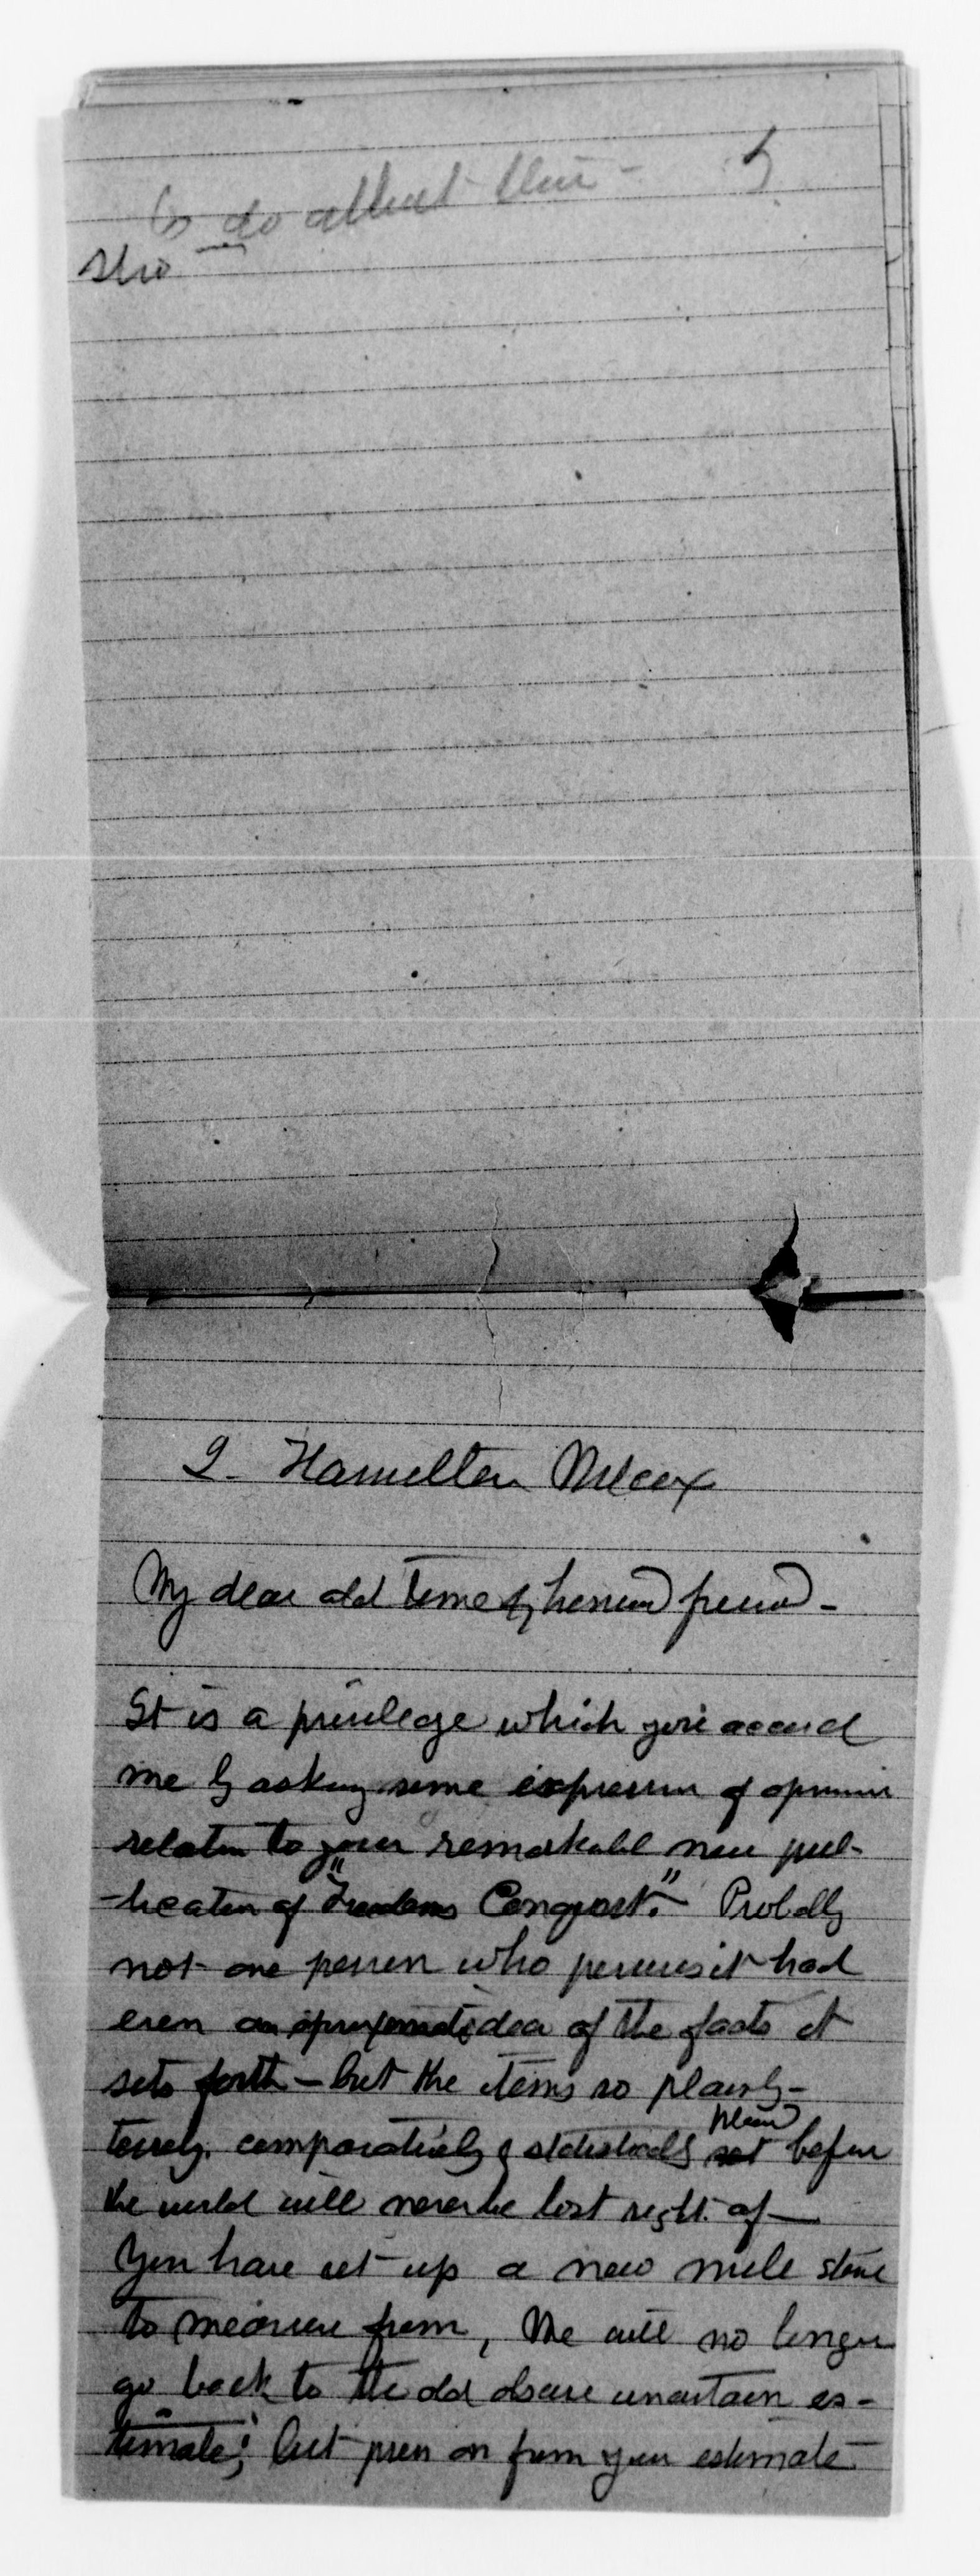 to do about them - 5
J. Hamilton Wilcox
My dear old time & honored friend -
It is a privilege which you accord
me by asking some expression of opinion
relative to your remarkable new pub-
-lication of "Freedoms Conquest." Probably
not one person who peruses it had
even an aproximate idea of the facts it
sets forth - but the items so plainly -
tersely, comparatively & statistically placed before
the world will never be lost sight of —
You have set up a new mile stone
to measure from, We will no longer
go back to the old obscure uncertain es-
timate; but press on from your estimate